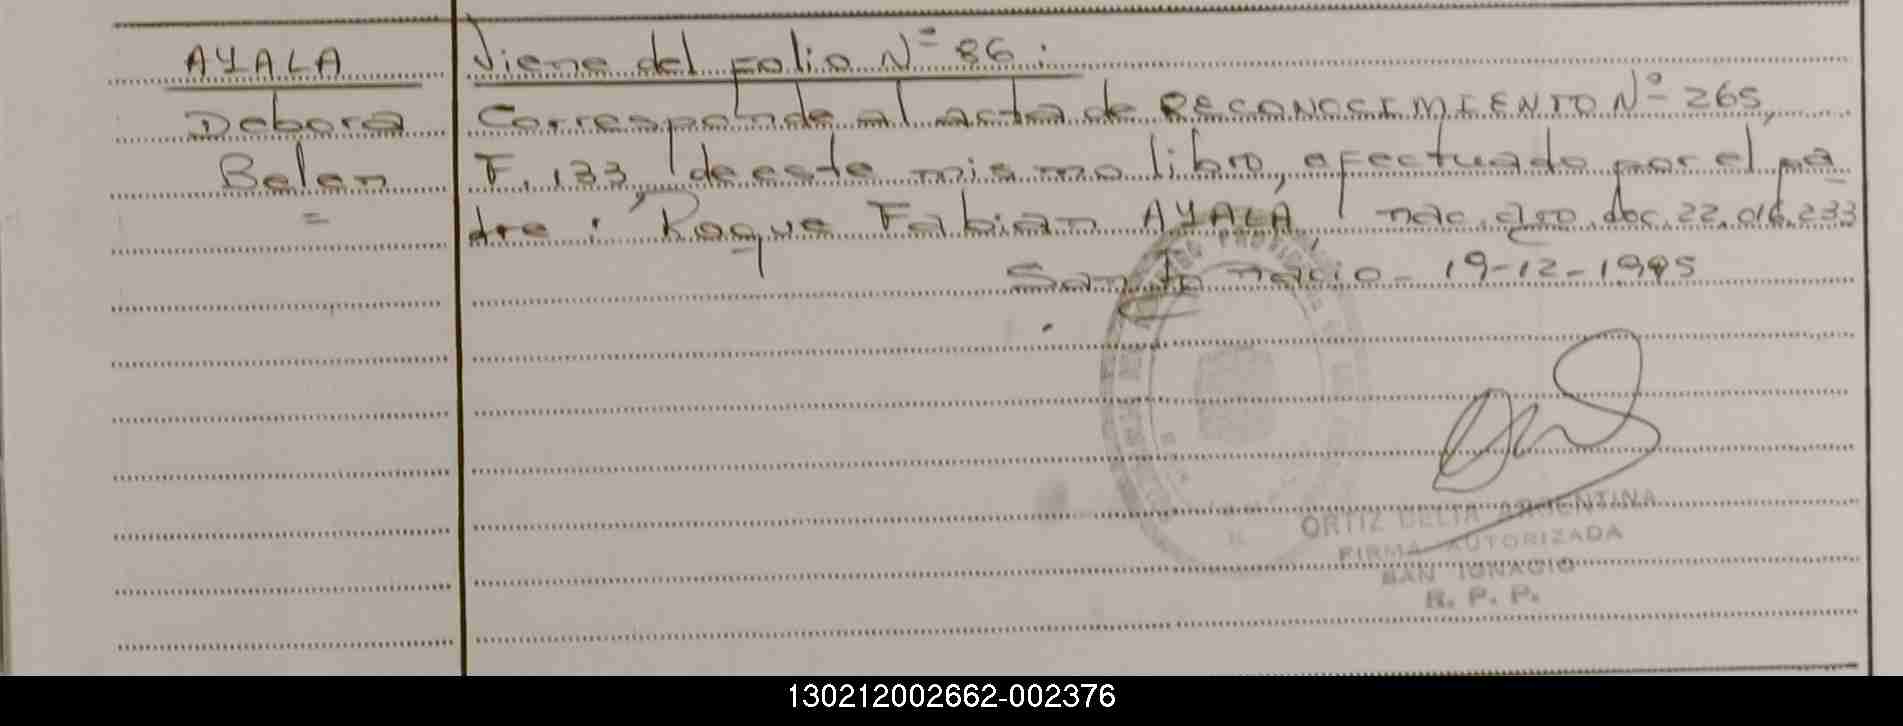 AYALA
Debora
Belen
=
Viene del folio Nº 86.
Corresponde al acta de RECONOCIMIENTO Nº 265,
F. 133, de este mismo libro, efectuado por el pa
dre: Roque Fabian AYALA, nac. arg. doc. 22.016.233
San Ignacio- 19-12-1995
ORTIZ DELIA ARGENTINA
FIRMA AUTORIZADA
SAN IGNACIO
R. P. P.
130212002662-002376